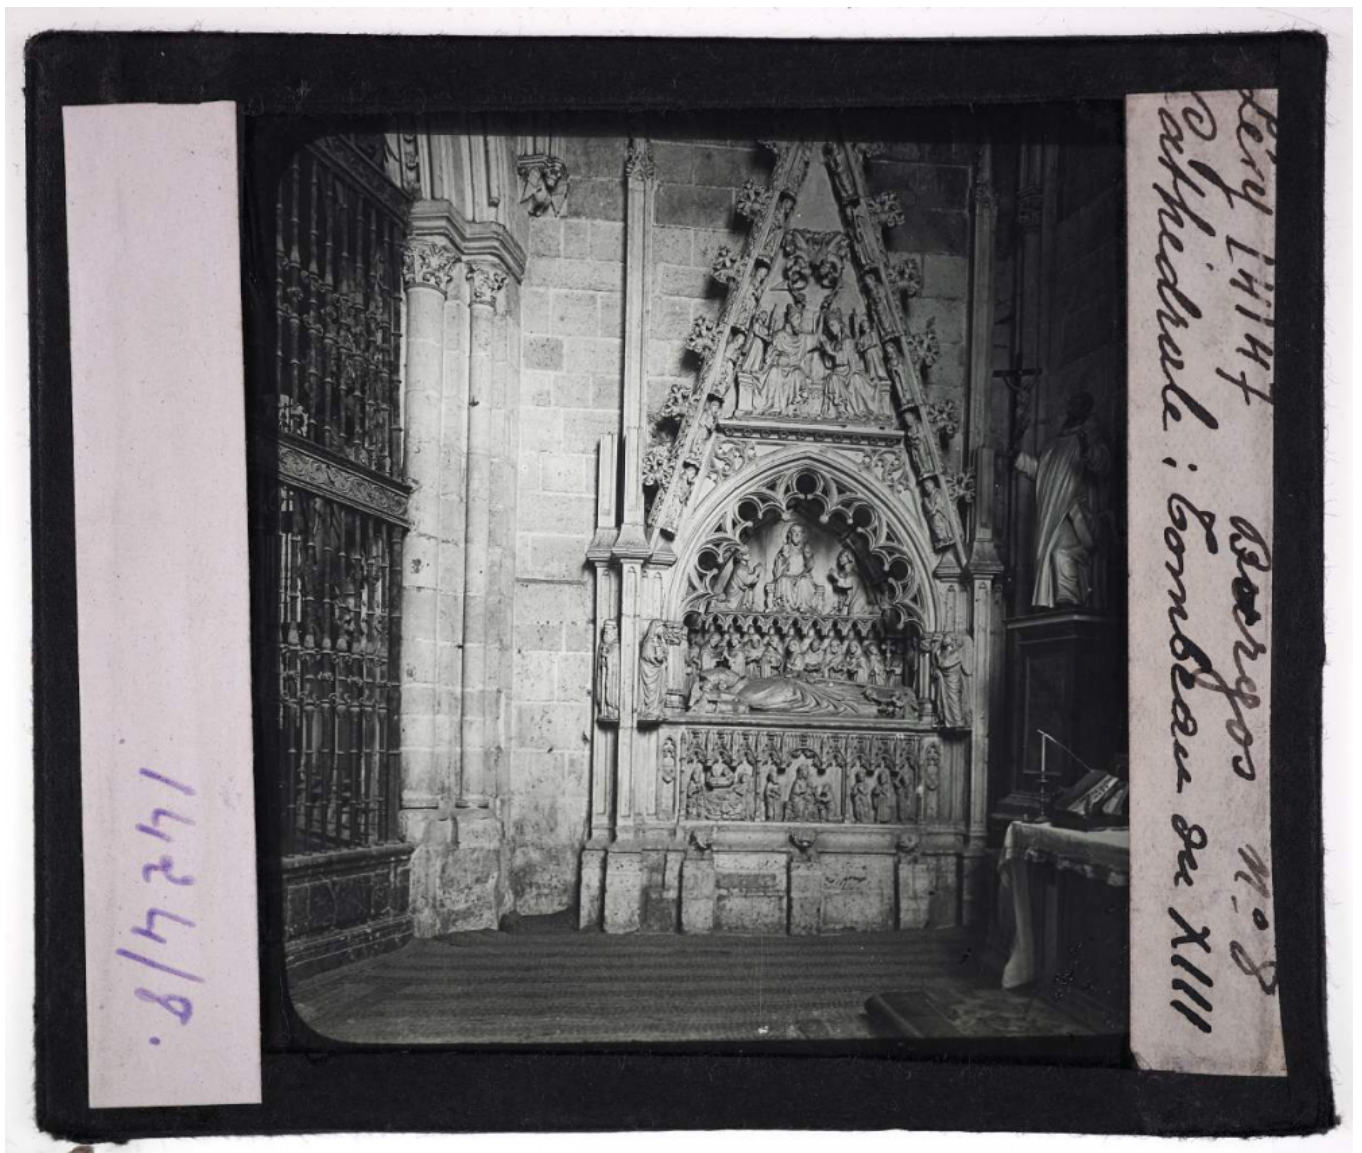 Lévy 14147 Burgos N.º 8
Cathédrale : Tombeau du XIII
14244/8.